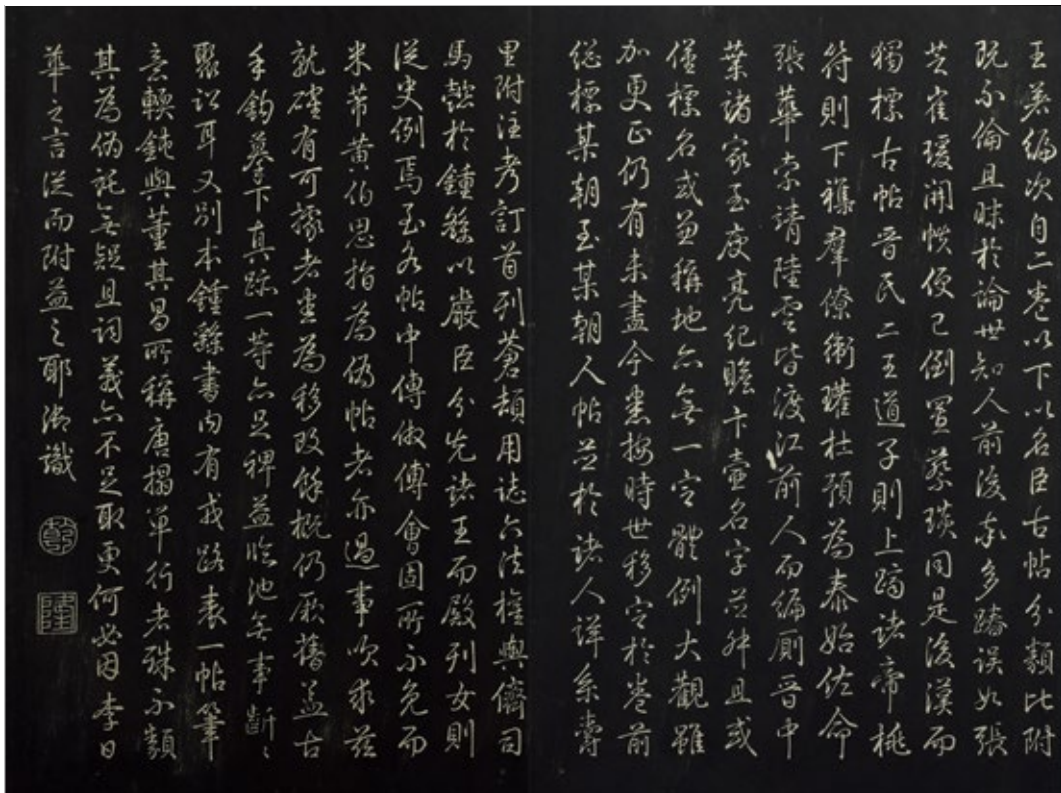 王著編次自二卷以下以名臣古帖分類比附
既不倫且昧於論世知人前後亦多踳誤如張
芝崔瑗開帙便已倒置蔡琰同是後漢而
獨標古帖晉氏二王道子則上躋諸帝桃
符則下襍羣僚衞瓘杜預為泰始佐命
張華索靖陸雲皆渡江前人而編廁晉中
葉諸家至庾亮紀瞻卞壼名字並舛且或
僅標名或兼稱地亦無一定體例大觀雖
加更正仍有未盡今悉按時世移定於卷前
總標某朝至某朝人帖並於諸人詳系爵
里附注考訂首列蒼頡用誌六法權輿儕司
馬懿於鍾繇以嚴臣分先諸王而殿列女則
從史例焉至各帖中傅倣傅會固所不免而
米芾黃伯思指為偽帖者亦過事吹求茲
就確有可據者悉為移改餘概仍厥舊蓋古
手鉤摹下真跡一等亦足裨益臨池無事齗〻
聚訟耳又別本鍾繇書內有戎路表一帖筆
意輭鈍與董其昌所稱唐搨單行者殊不類
其為偽託無疑且詞義亦不足取更何必因李日
華之言從而附益之耶御識
乾
隆